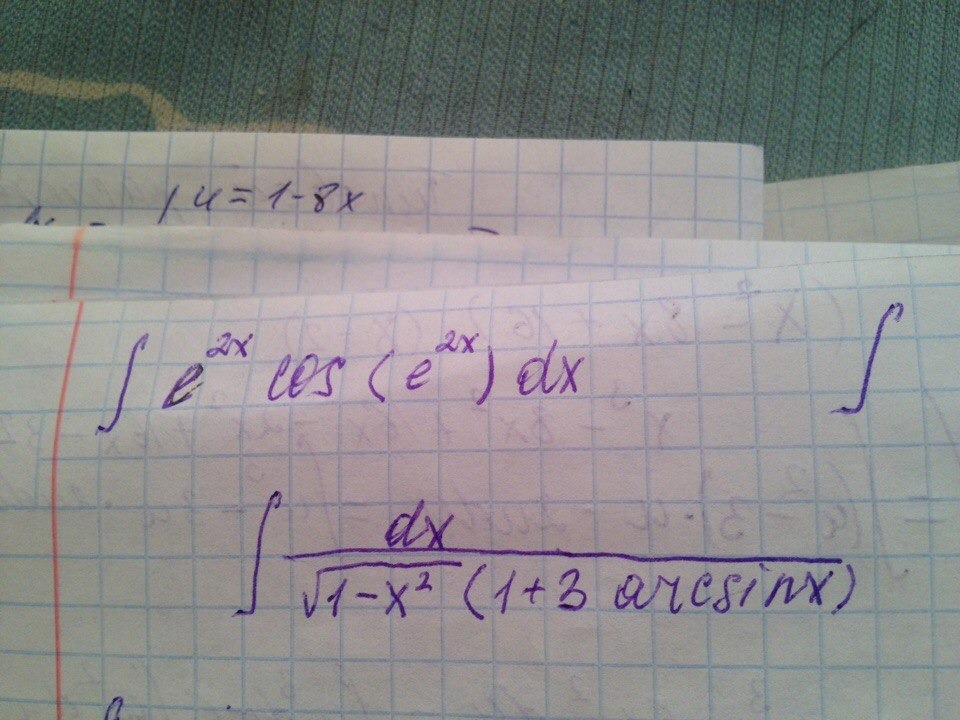 u = 1 - 8x
∫ e^{2x} cos (e^{2x}) dx ∫
∫ dx / (√(1-x²) (1+3 arcsinx))